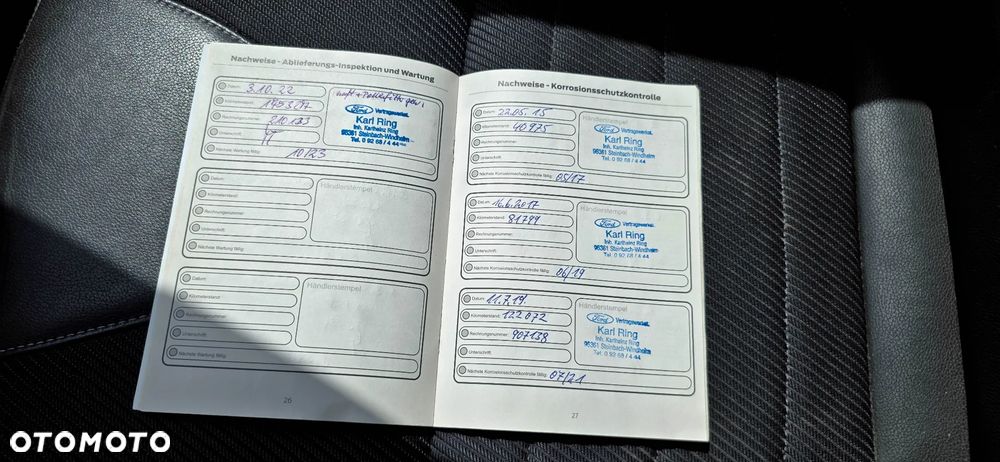 Nachweise - Ablieferungs-Inspektion und Wartung
Datum: 3.10.22
Kilometerstand: 145347
Rechnungsnummer: 310133
Unterschrift:
Nächste Wartung fällig: 10/23
Ford Vertragswerkst.
Karl Ring
Inh. Karlheinz Ring
96361 Steinbach-Windheim
Tel. 0 92 68 / 4 44
Datum:
Kilometerstand:
Rechnungsnummer:
Unterschrift:
Nächste Wartung fällig:
Händlerstempel
Datum:
Kilometerstand:
Rechnungsnummer:
Unterschrift:
Nächste Wartung fällig:
Händlerstempel
26
Nachweise - Korrosionsschutzkontrolle
Datum: 22.05.15
Kilometerstand: 40975
Rechnungsnummer:
Unterschrift:
Nächste Korrosionsschutzkontrolle fällig: 05/17
Händlerstempel
Ford Vertragswerkst.
Karl Ring
Inh. Karlheinz Ring
96361 Steinbach-Windheim
Tel. 0 92 68 / 4 44
Datum: 16.6.2017
Kilometerstand: 81799
Rechnungsnummer:
Unterschrift:
Nächste Korrosionsschutzkontrolle fällig: 06/19
Händlerstempel
Ford Vertragswerkst.
Karl Ring
Inh. Karlheinz Ring
96361 Steinbach-Windheim
Tel. 0 92 68 / 4 44
Datum: 11.7.19.
Kilometerstand: 122072
Rechnungsnummer: 907138
Unterschrift:
Nächste Korrosionsschutzkontrolle fällig: 07/21
Händlerstempel
Ford Vertragswerkst.
Karl Ring
Inh. Karlheinz Ring
96361 Steinbach-Windheim
Tel. 0 92 68 / 4 44
27
OTOMOTO